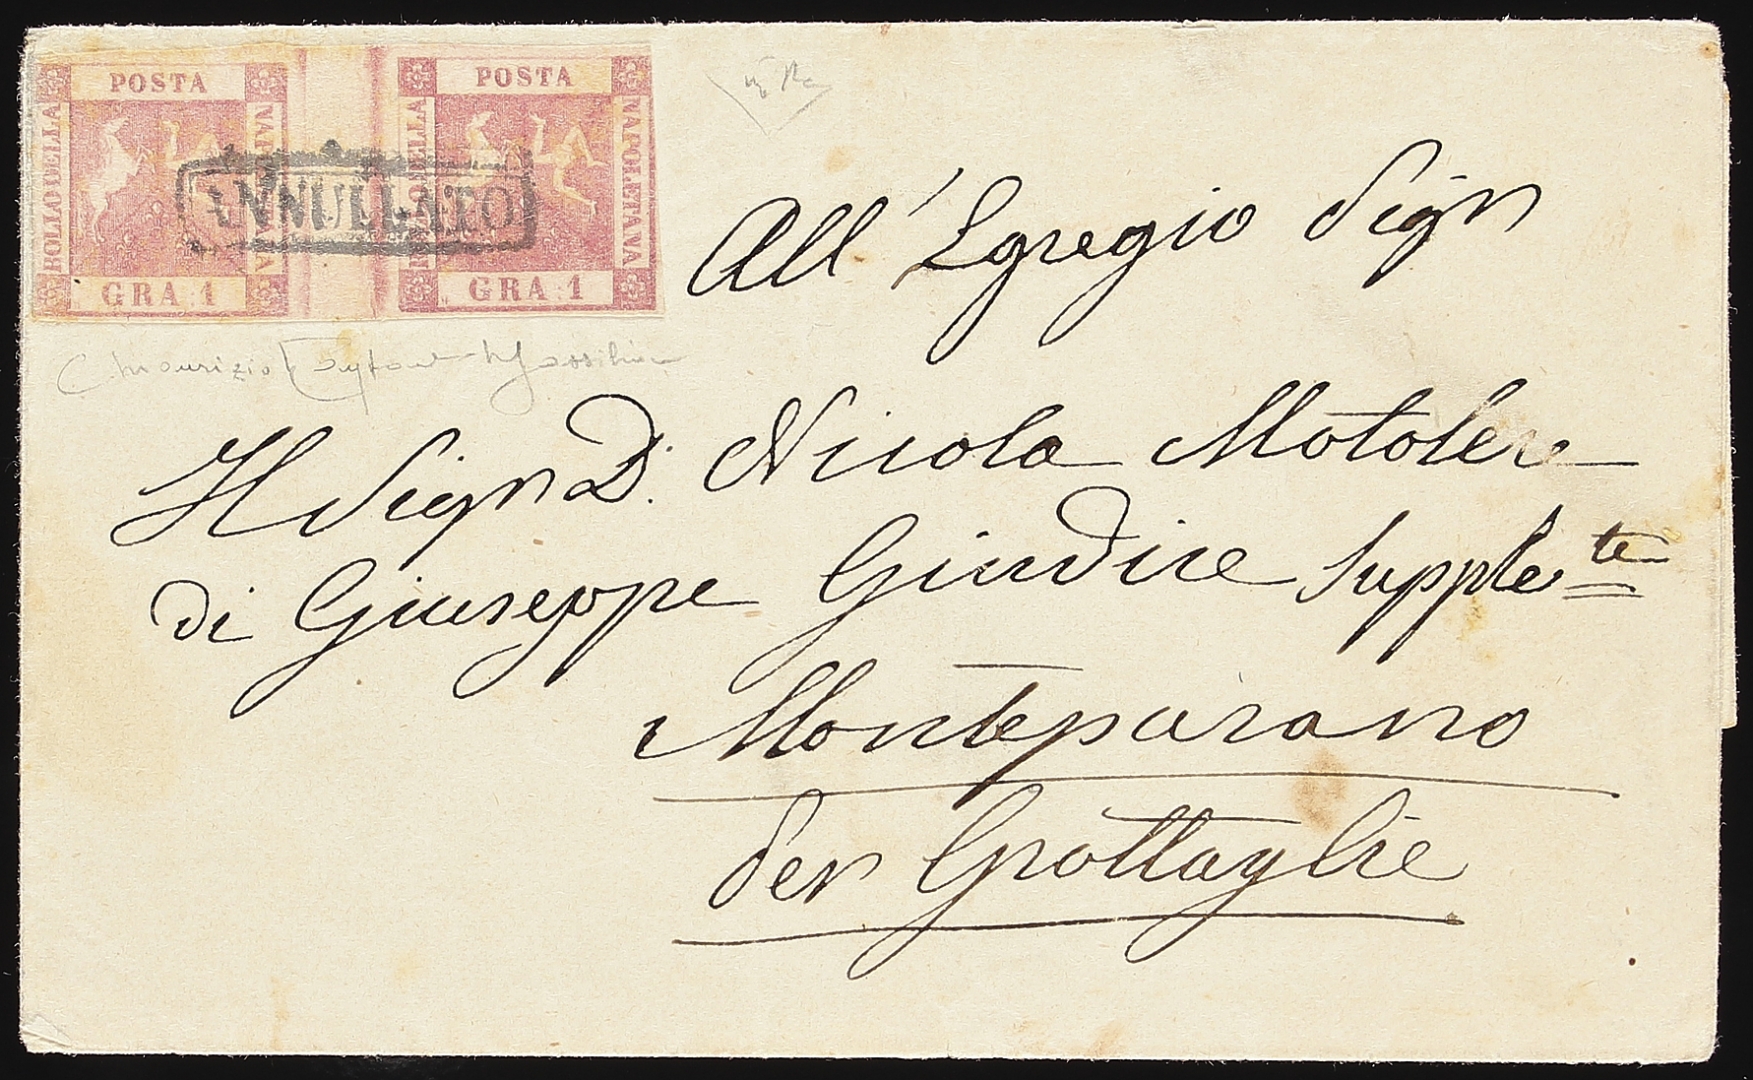 POSTA POSTA
BOLLO DELLA NAPOLETANA BOLLO DELLA NAPOLETANA
ANNULLATO
GRA 1 GRA 1
All' Egregio Sign
Il Sign D. Nicola Motolese
di Giuseppe Giudice Supplete
Monteparano
per Grottaglie